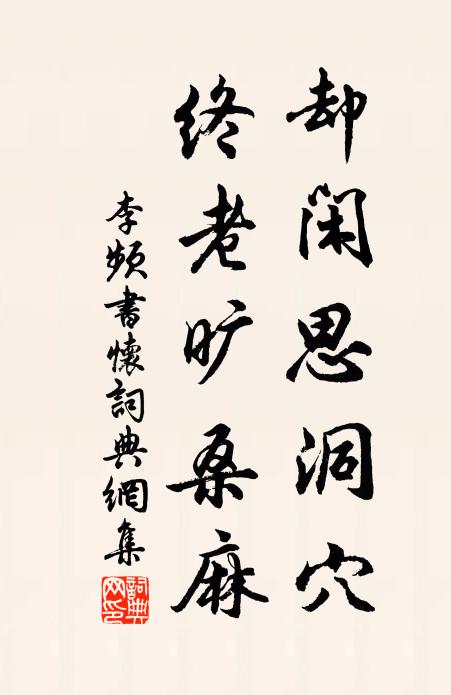 却闲思洞穴
终老旷桑麻
李频書懷詞典網集
詞典网印